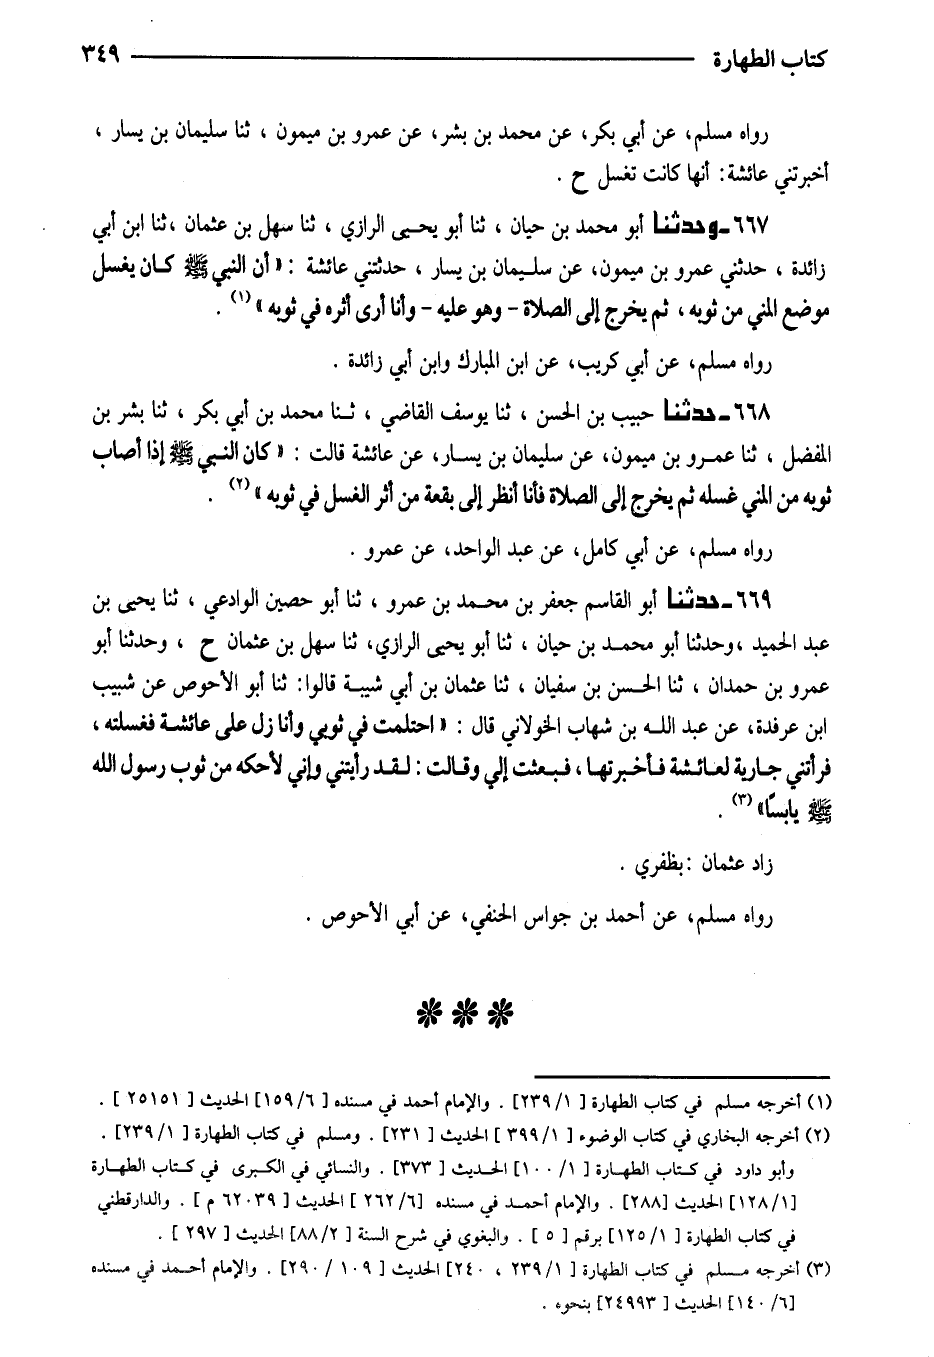 كتاب الطهارة ٣٤٩
رواه مسلم، عن أبي بكر، عن محمد بن بشر، عن عمرو بن ميمون ، ثنا سليمان بن يسار ،
أخبرتني عائشة: أنها كانت تغسل ح .
٦٦٧ـ وحدثنا أبو محمد بن حيان ، ثنا أبو يحيى الرازي ، ثنا سهل بن عثمان ،ثنا ابن أبي
زائدة ، حدثني عمرو بن ميمون، عن سليمان بن يسار ، حدثتني عائشة : « أن النبي ﷺ كان يغسل
موضع المني من ثوبه ، ثم يخرج إلى الصلاة - وهو عليه - وأنا أرى أثره في ثوبه » (١) .
رواه مسلم، عن أبي كريب، عن ابن المبارك وابن أبي زائدة .
٦٦٨ـ حدثنا حبيب بن الحسن ، ثنا يوسف القاضي ، ثنا محمد بن أبي بكر ، ثنا بشر بن
المفضل ، ثنا عمرو بن ميمون، عن سليمان بن يسار، عن عائشة قالت : « كان النبي ﷺ إذا أصاب
ثوبه من المني غسله ثم يخرج إلى الصلاة فأنا أنظر إلى بقعة من أثر الغسل في ثوبه » (٢) .
رواه مسلم، عن أبي كامل، عن عبد الواحد، عن عمرو .
٦٦٩ـ حدثنا أبو القاسم جعفر بن محمد بن عمرو ، ثنا أبو حصين الوادعي ، ثنا يحيى بن
عبد الحميد ،وحدثنا أبو محمد بن حيان ، ثنا أبو يحيى الرازي، ثنا سهل بن عثمان ح ، وحدثنا أبو
عمرو بن حمدان ، ثنا الحسن بن سفيان ، ثنا عثمان بن أبي شيبة قالوا: ثنا أبو الأحوص عن شبيب
ابن عرفدة، عن عبد الله بن شهاب الخولاني قال : « احتلمت في ثوبي وأنا زل على عائشة فغسلته ،
فرأتني جارية لعائشة فأخبرتها ، فبعثت إلي وقالت : لقد رأيتني وإني لأحكه من ثوب رسول الله
ﷺ يابسًا» (٣) .
زاد عثمان :بظفري .
رواه مسلم، عن أحمد بن جواس الحنفي، عن أبي الأحوص .
(١) أخرجه مسلم في كتاب الطهارة [ ١/ ٢٣٩] . والإمام أحمد في مسنده [ ٦/ ١٥٩] الحديث [ ٢٥١٥١ ] .
(٢) أخرجه البخاري في كتاب الوضوء [ ١/ ٣٩٩ ] الحديث [ ٢٣١] . ومسلم في كتاب الطهارة [ ١/ ٢٣٩] .
وأبو داود في كتاب الطهارة [ ١/ ١٠٠] الحديث [ ٣٧٣] . والنسائي في الكبرى في كتاب الطهارة
[١/ ١٢٨] الحديث [٢٨٨] . والإمام أحمد في مسنده [٦/ ٢٦٢ ] الحديث [ ٦٢٠٣٩ م ] . والدارقطني
في كتاب الطهارة [ ١/ ١٢٥] برقم [ ٥ ] . والبغوي في شرح السنة [ ٢/ ٨٨] الحديث [ ٢٩٧ ] .
(٣) أخرجه مسلم في كتاب الطهارة [ ١/ ٢٣٩ ، ٢٤٠] الحديث [ ١٠٩ / ٢٩٠] . والإمام أحمد في مسنده
[٦/ ١٤٠] الحديث [ ٢٤٩٩٣] بنحوه .